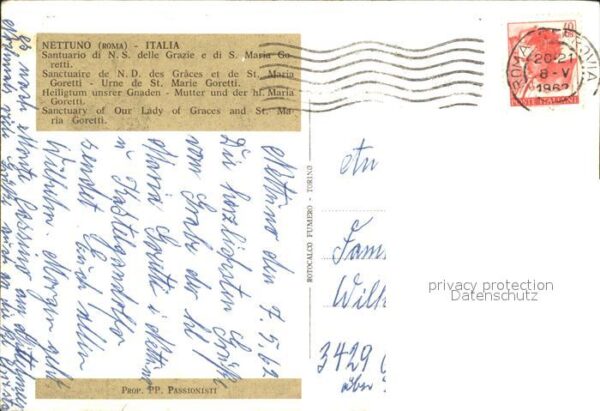 NETTUNO (ROMA) - ITALIA
Santuario di N. S. delle Grazie e di S. Maria Go-
retti.
Sanctuaire de N. D. des Grâces et de St. Maria
Goretti - Urne de St. Marie Goretti.
Heiligtum unsrer Gnaden - Mutter und der hl. Maria
Goretti.
Sanctuary of Our Lady of Graces and St. Ma-
ria Goretti.
Nettuno den 7.5.62
Die herzlichsten Grüße
vom Grabe der hl.
Maria Goretti i. Nettuno
u. Kastelgandolfo
sendet Euch allen
Wilhelm. Morgen geht
es nach Monte Cassino
PROP. PP. PASSIONISTI
ROTOCALCO FUMERO - TORINO
ROMA FERROVIA
20-21
8-V
1962
40
POSTE ITALIANE
An
Fam
Wilh
3429
über
privacy protection
Datenschutz